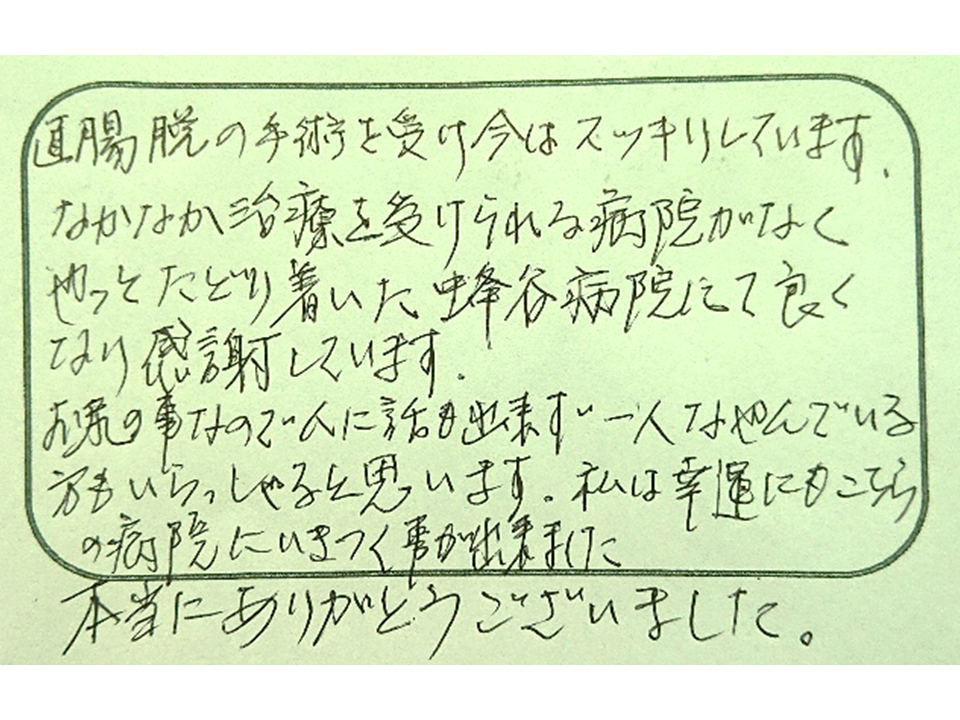 直腸脱の手術を受け今はスッキリしています.
なかなか治療を受けられる病院がなく
やっとたどり着いた蜂谷病院にて良く
なり感謝しています.
お尻の事なので人に話も出来ず一人なやんでいる
方もいらっしゃると思います。私は幸運にもこちら
の病院にいきつく事が出来ました
本当にありがとうございました。